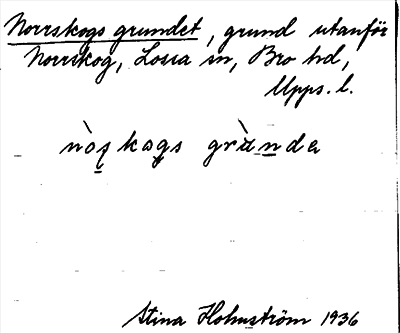 Norrskogs grundet, grund utanför
Norrskog, Lossa sn, Bro hd,
Upps. l.
nòs̱kogs grùṉdeʀ
Stina Holmström 1936